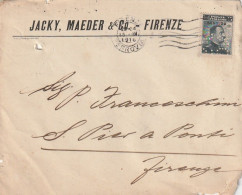 JACKY, MAEDER & Co. - FIRENZE
Sig P. Franceschini
S. Pier a Ponti
Firenze